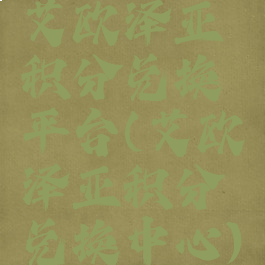 艾欧泽亚
积分兑换
平台(艾欧
泽亚积分
兑换中心)